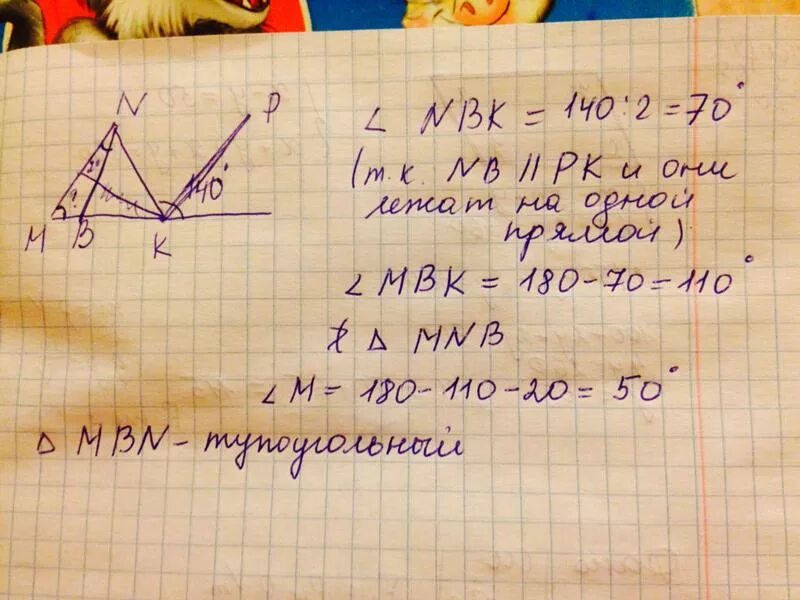 N
P
140°
M
B
K
∠ NBK = 140:2=70°
(т.к. NB || PK и они
лежат на одной
прямой)
∠ MBK = 180-70=110°
△ MNB
∠ M = 180-110-20= 50°
△ MBN - тупоугольный